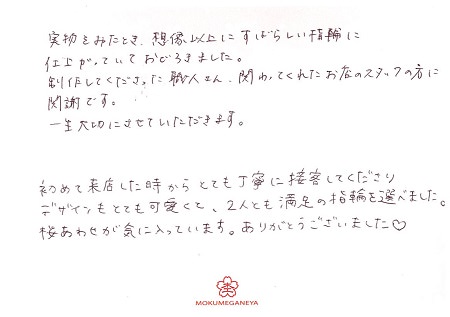 実物をみたとき、想像以上にすばらしい指輪に
仕上がっていておどろきました。
制作してくださった職人さん、関わってくれたお店のスタッフの方に
感謝です。
一生大切にさせていただきます。
初めて来店した時からとても丁寧に接客してくださり
デザインもとても可愛くて、2人とも満足の指輪を選べました。
桜あわせが気に入っています。ありがとうございました♡
MOKUMEGANEYA